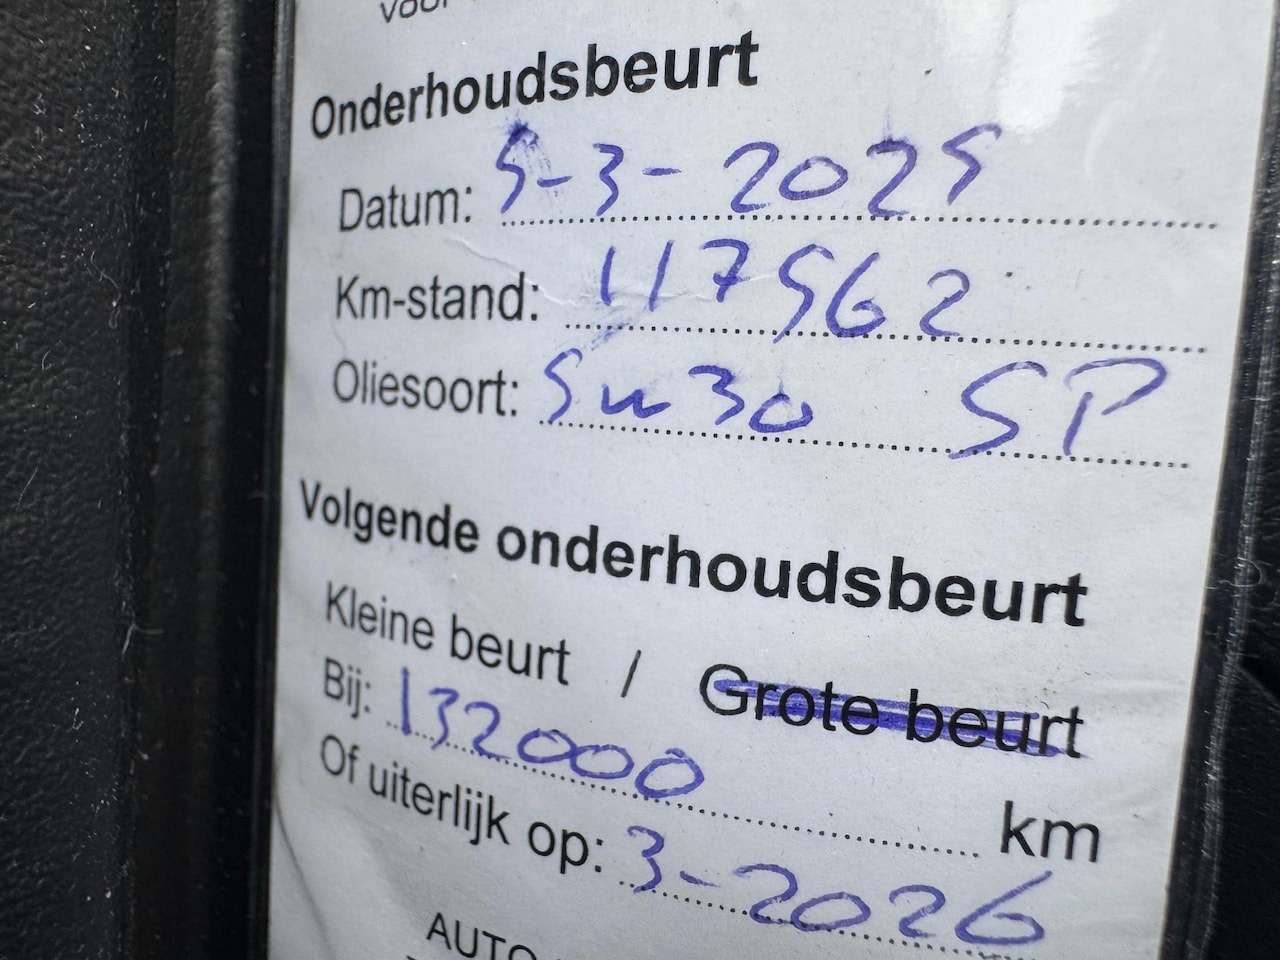 Onderhoudsbeurt
Datum: 5-3-2025
Km-stand: 117562
Oliesoort: 5w30 SP
Volgende onderhoudsbeurt
Kleine beurt / Grote beurt
Bij: 132000 km
Of uiterlijk op: 3-2026
AUTO